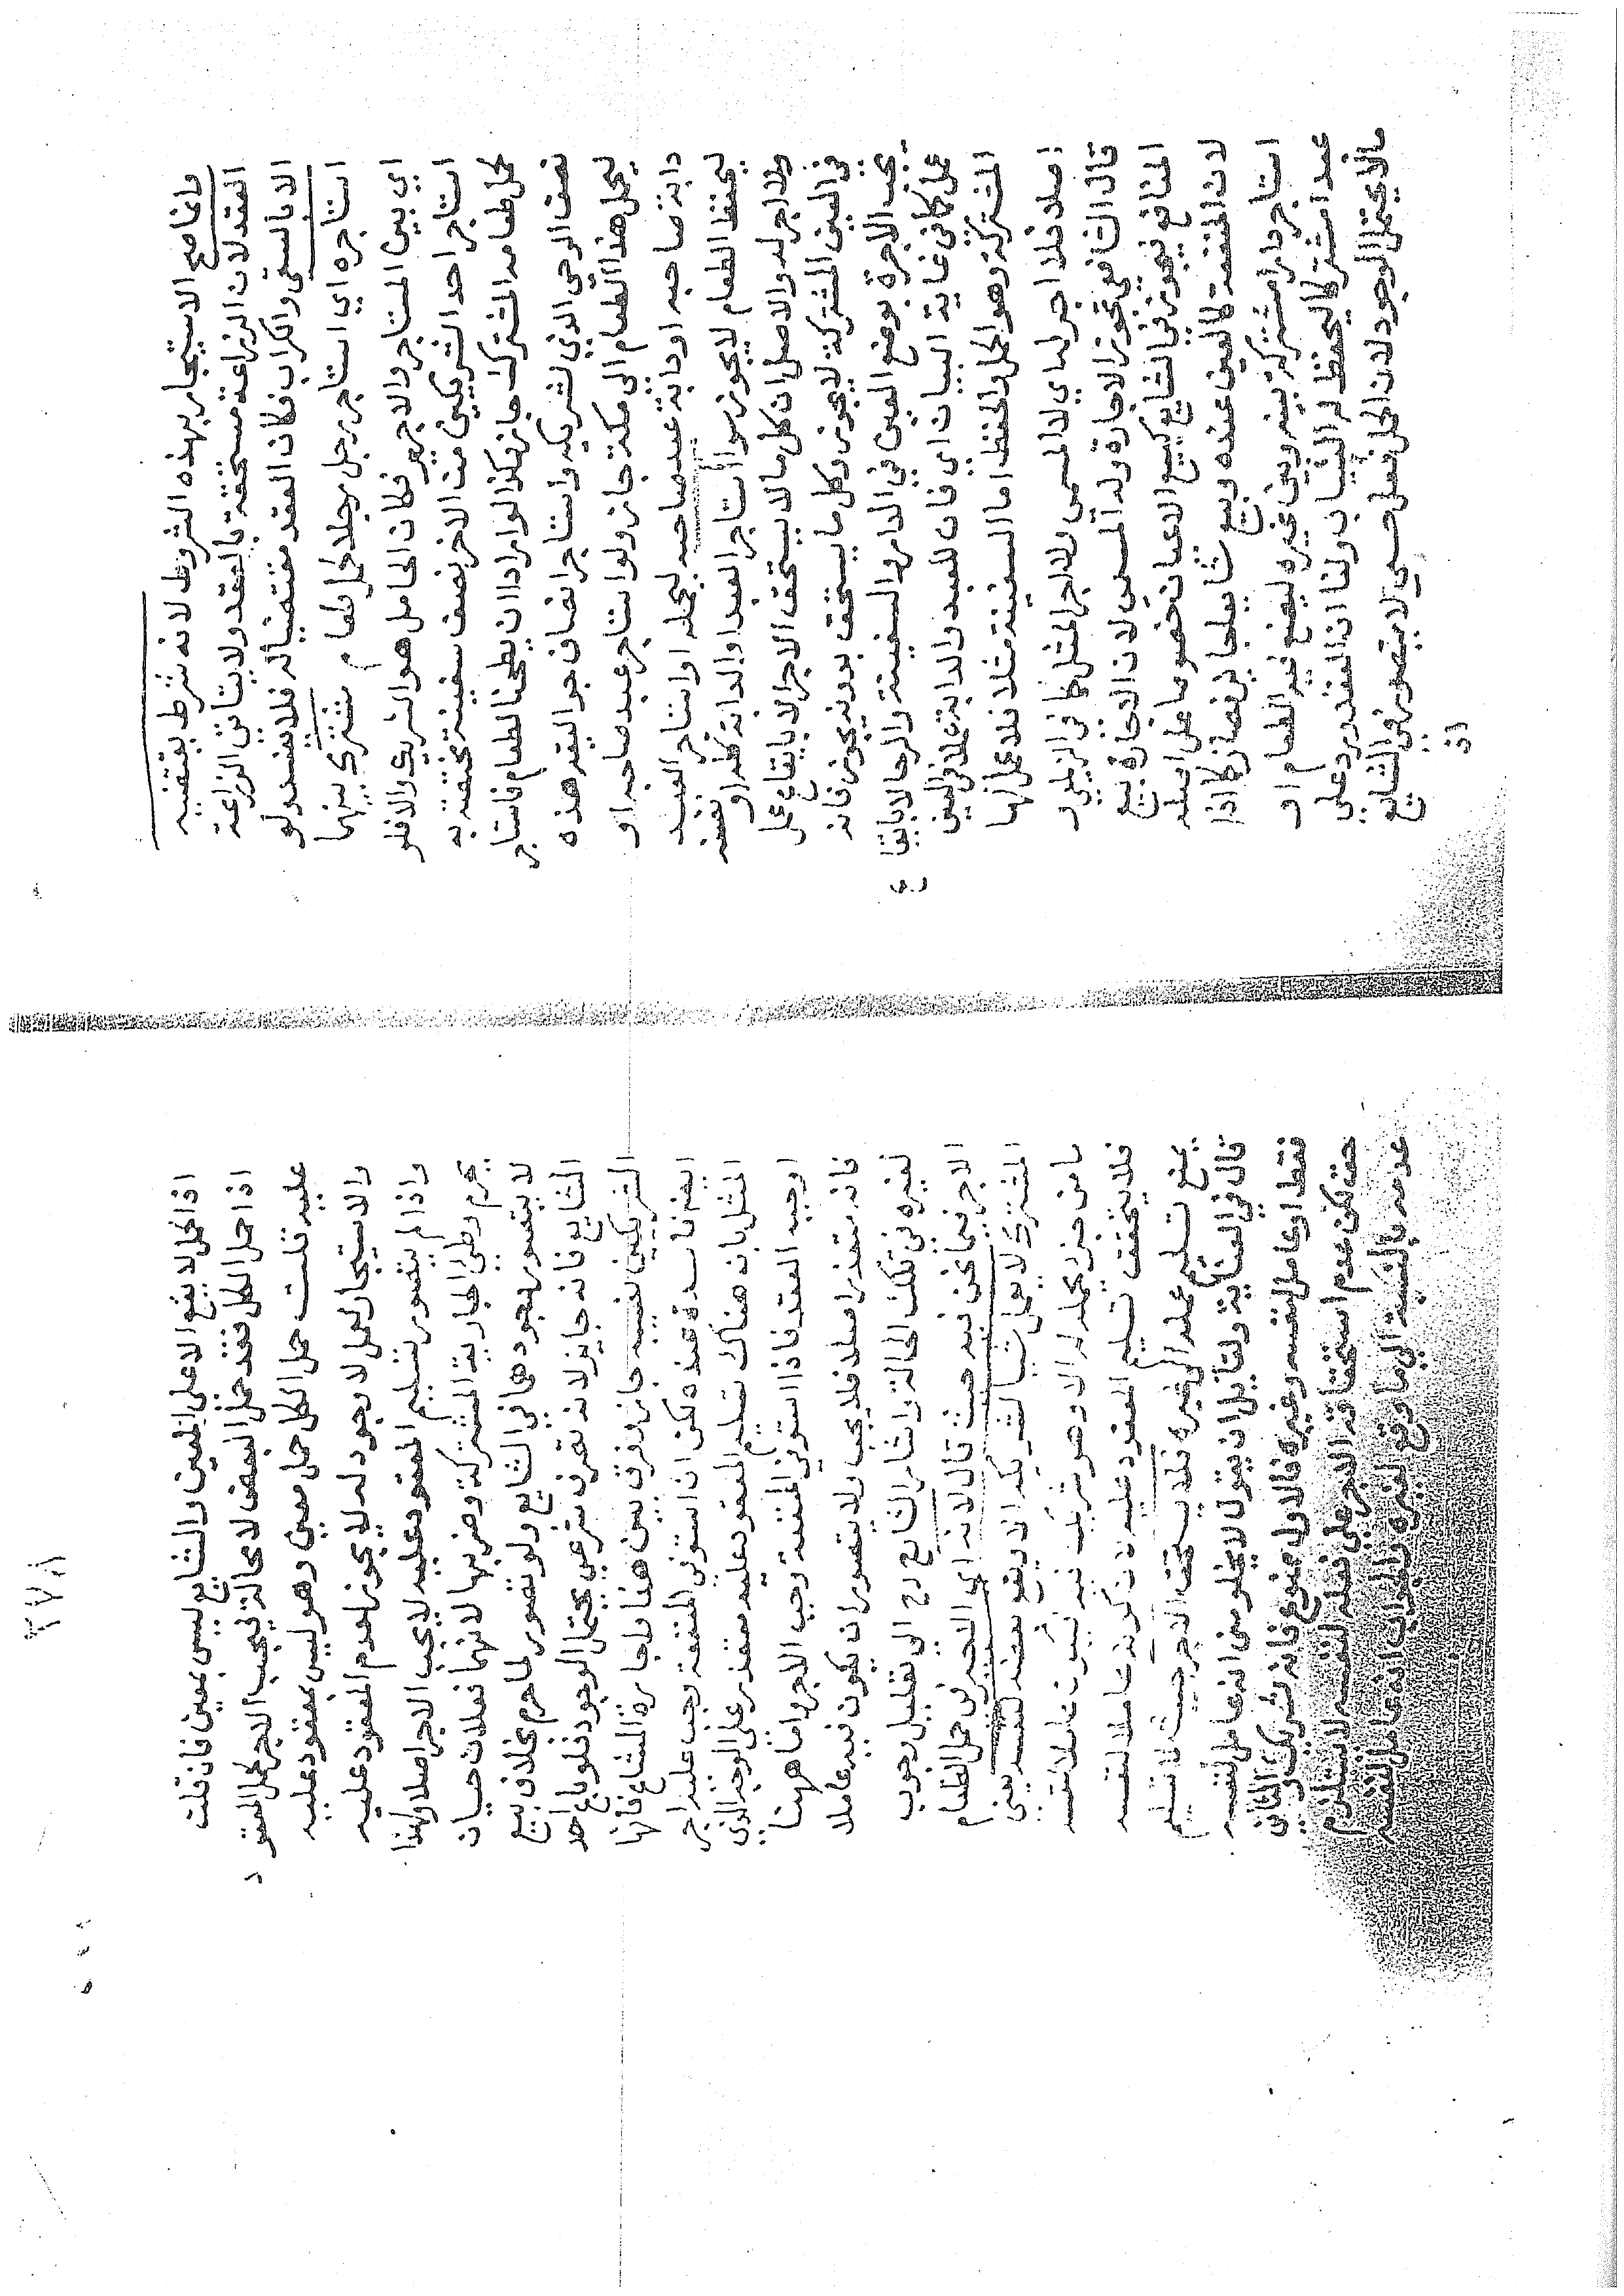 وانما صح الاستيجار بهذه الشروط لانه شرط يقتضيه
العقد لان الزراعة مستحقة بالعقد ولا يتاتى الزراعة
الا بالسقي والكراب فكان العقد مقتضيا له فلا يفسد ولو
استاجره اي استاجر رجل رجلا لحمل طعام مشترك بينهما
اي بين المستاجر والاجير فكان الحامل هو الشريك والافلو
استاجر احد الشريكين من الاخر نصف سفينة تختص به
لحمل طعامه المشترك جاز وكذا لو ارادا ان يطحنا الطعام فاستاجر
نصف الرحى الذي لشريكه او استاجر انصاف جواليقه هذه
ليحمل هذا الطعام الى مكة جاز ولو استاجر عبد صاحبه او
دابة صاحبه او دابة عبد صاحبه ليحمله او استاجر العبد
ليحفظ الطعام لا يجوز سوا استاجر العبد او الدابة كله او نصفه
ولا اجر له والاصل ان كل ما لا يستحق الاجر الا بايقاع عمل
في العين المشتركة لا يجوز وكل ما يستحق بدونه يجوز فانه
يجب الاجرة بوضع العين في الدار والسفينة والرحا لا بايقاع
عمل كما في غاية البيان اي فان للعبد والدابة عملا في العين
المشتركة وهو الحمل والحفظ اما السفينة مثلا فلا عمل لها
اصلا فلا اجر له اي لا المسمى ولا اجر المثل كما في الزيلعي و
قال الشافعي تجوز الاجارة وله المسمى لان الاجارة بيع
المنافع فيجوز في الشايع كبيع الاعيان خصوصا على اصله
لان المنفعة كالعين عنده وبيع شايعا جايز فصار كما اذا
استاجر دارا مشتركة بينه وبين غيره ليضع فيها الطعام او
عبدا مشتركا ليخيط له الثياب ولنا ان العقد ورد على
ما لا يحتمل الوجود لان الحمل فعل حسي لا يتصور في الشايع
اذ
٢٧٨
اذ الحمل لا يقع الا على المعين والشايع ليس بمعين فان قلت
اذا حمل الكل فقد حمل البعض لا محالة فيجب الاجر لحمل المعقود
عليه قلت حمل الكل حمل معين وهو ليس بمعقود عليه
والاستيجار لعمل لا وجود له لا يجوز لعدم المعقود عليه
واذا لم يتصور تسليم المعقود عليه لا يجب الاجر اصلا ولهذا
يحرم وطئ الجارية المشتركة وضربها لانهما فعلان حسيان
لا يتصور وجودهما في الشايع ولو تصور لما حرم بخلاف بيع
الشايع فانه جايز لانه تصرف شرعي يحتمل الوجود فلو باع احد
الشريكين نصيبه جاز وفرق بين هنا واجارة المشاع فانها
ايضا فاسدة عنده لكن ان استوفى المنفعة يجب عليه اجر
المثل بان هناك تسليم المعقود عليه متعذر على الوجه الذي
اوجبه العقد فاذا استوفى المنفعة وجب الاجر واما ههنا
فانه متعذر اصلا فلا يجب ولا يتصور ان يكون فيه عاملا
لغيره في تلك الحالة واشار الشارح الى تعليل وجوب
الاجر فيما نحن فيه حيث قال لانه اي الاجير في حمل الطعام
المشترك لا يعمل شيا لشريكه الا ويقع بعضه لنفسه يعني
ما من جزء يحمله الا وهو شريك فيه فيكون عاملا لنفسه
فلا يتحقق تسليم المعقود عليه لان كونه عاملا لنفسه
يمنع تسليم عمله الى غيره فلا يستحق الاجر حيث لا تسليم
قال في العناية ولقايل ان يقول لا يخلو من انه عامل لنفسه
فقط او عامل لنفسه وغيره فالاول ممنوع فانه شريك والثاني
حق لكن عدم استحقاقه الاجر على فعله لنفسه لا يستلزم
عدمه بالنسبة الى ما وقع لغيره والجواب انه عامل لنفسه